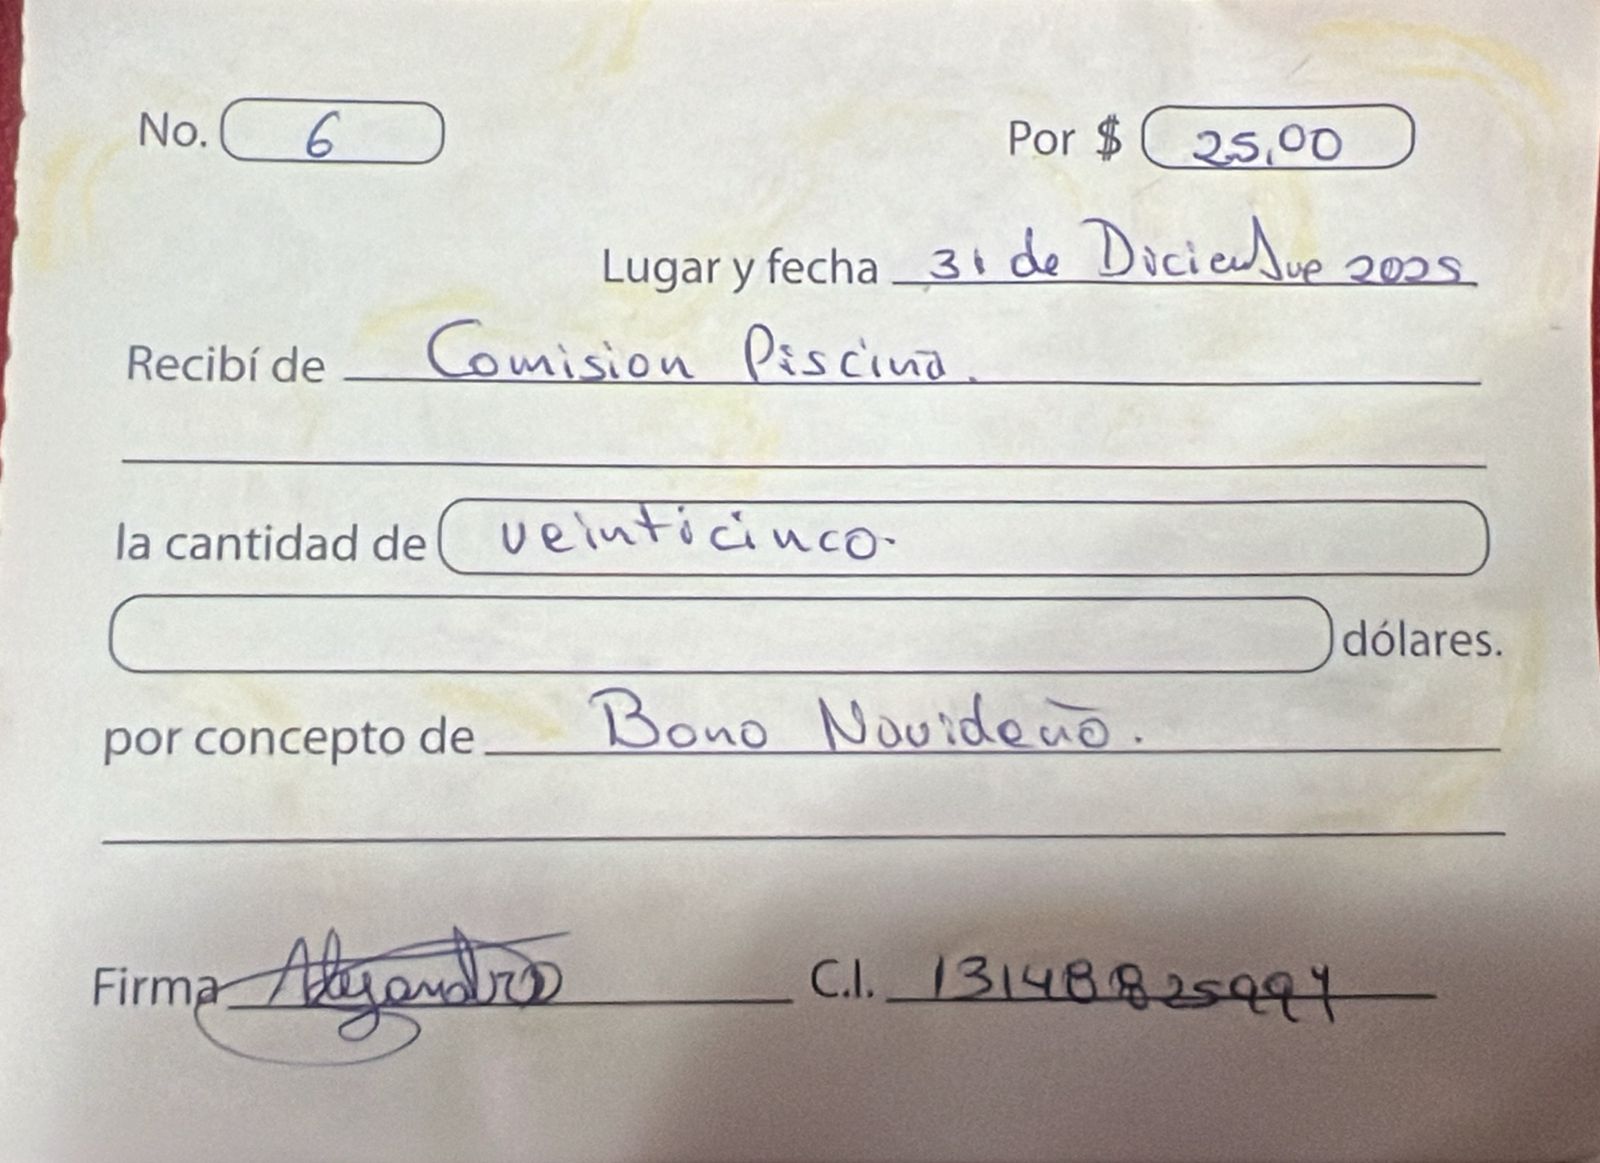 No. 6 Por $ 25,00
Lugar y fecha 31 de Diciembre 2025
Recibí de Comision Piscina.
la cantidad de veinticinco.
dólares.
por concepto de Bono Navideño.
Firma Alejandro C.I.